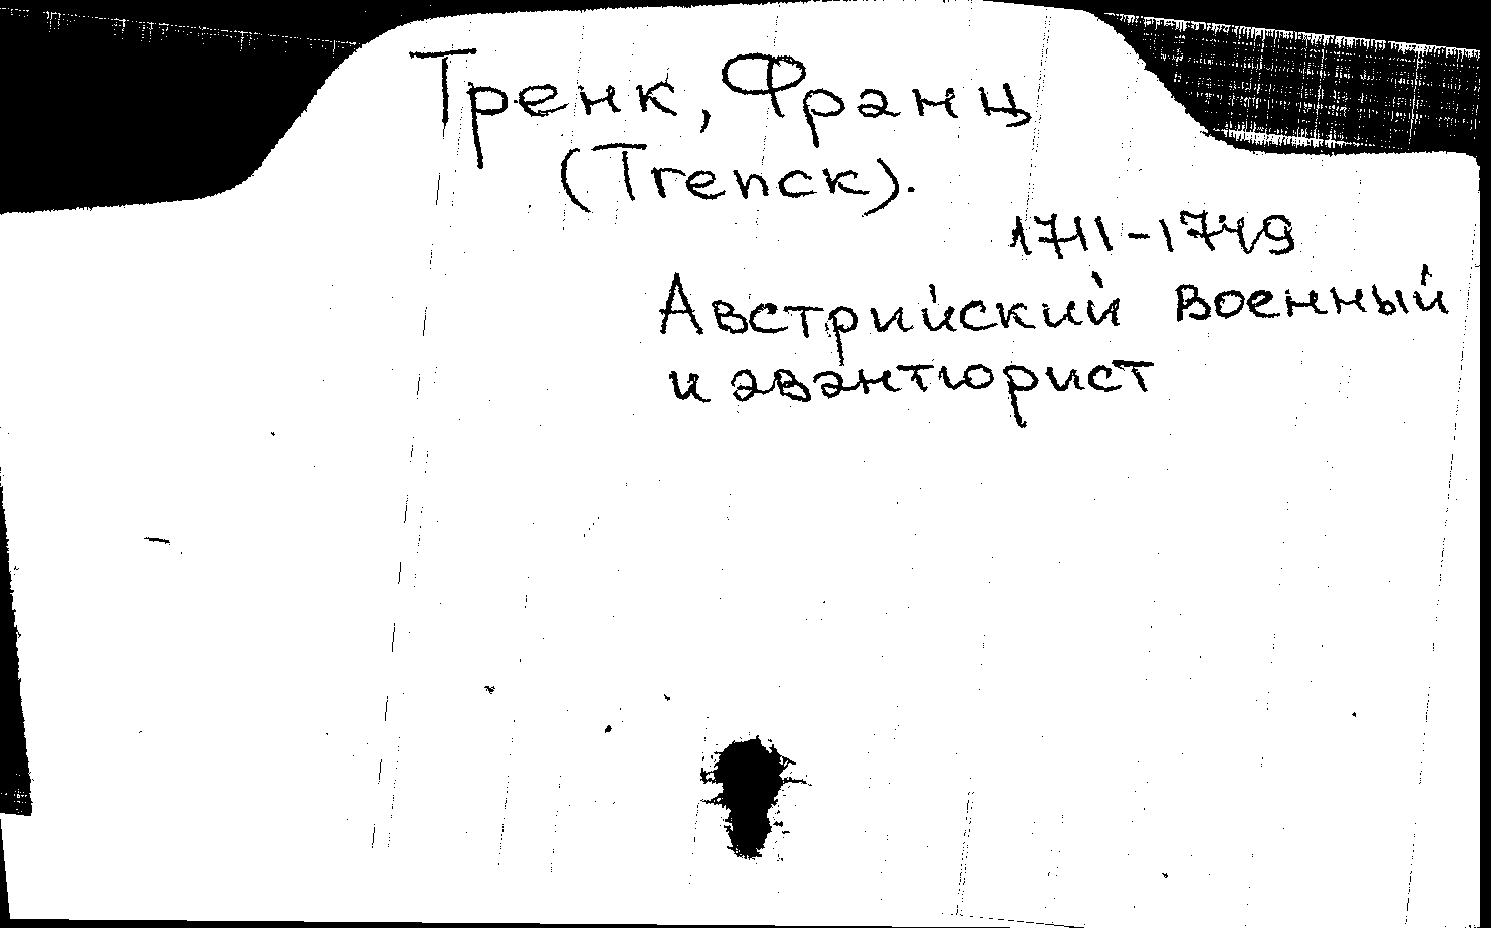 Тренк, Франц
(Trenck).
1711-1749
Австрийский военный
и авантюрист